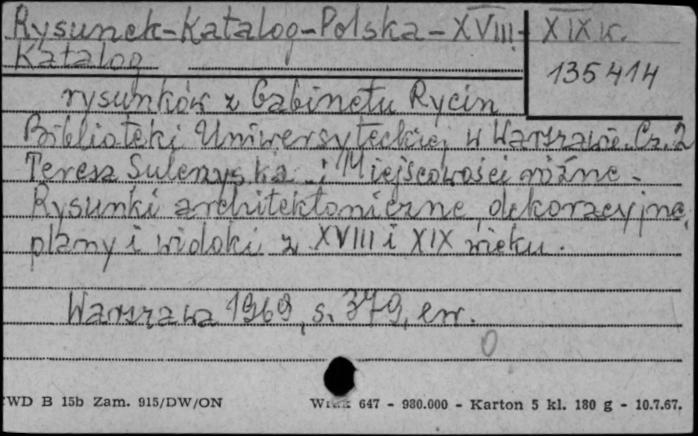 Rysunek-Katalog-Polska-XVIII-XIX w.
Katalog
135414
rysunków z Gabinetu Rycin
Biblioteki Uniwersyteckiej w Warszawie. Cz. 2
Teresa Sulerzyska: Miejscowości różne.
Rysunki architektoniczne, dekoracyjne,
plany i widoki z XVIII i XIX wieku.
Warszawa 1969, s. 379, err.
0
WD B 15b Zam. 915/DW/ON
647 - 980.000 - Karton 5 kl. 180 g - 10.7.67.